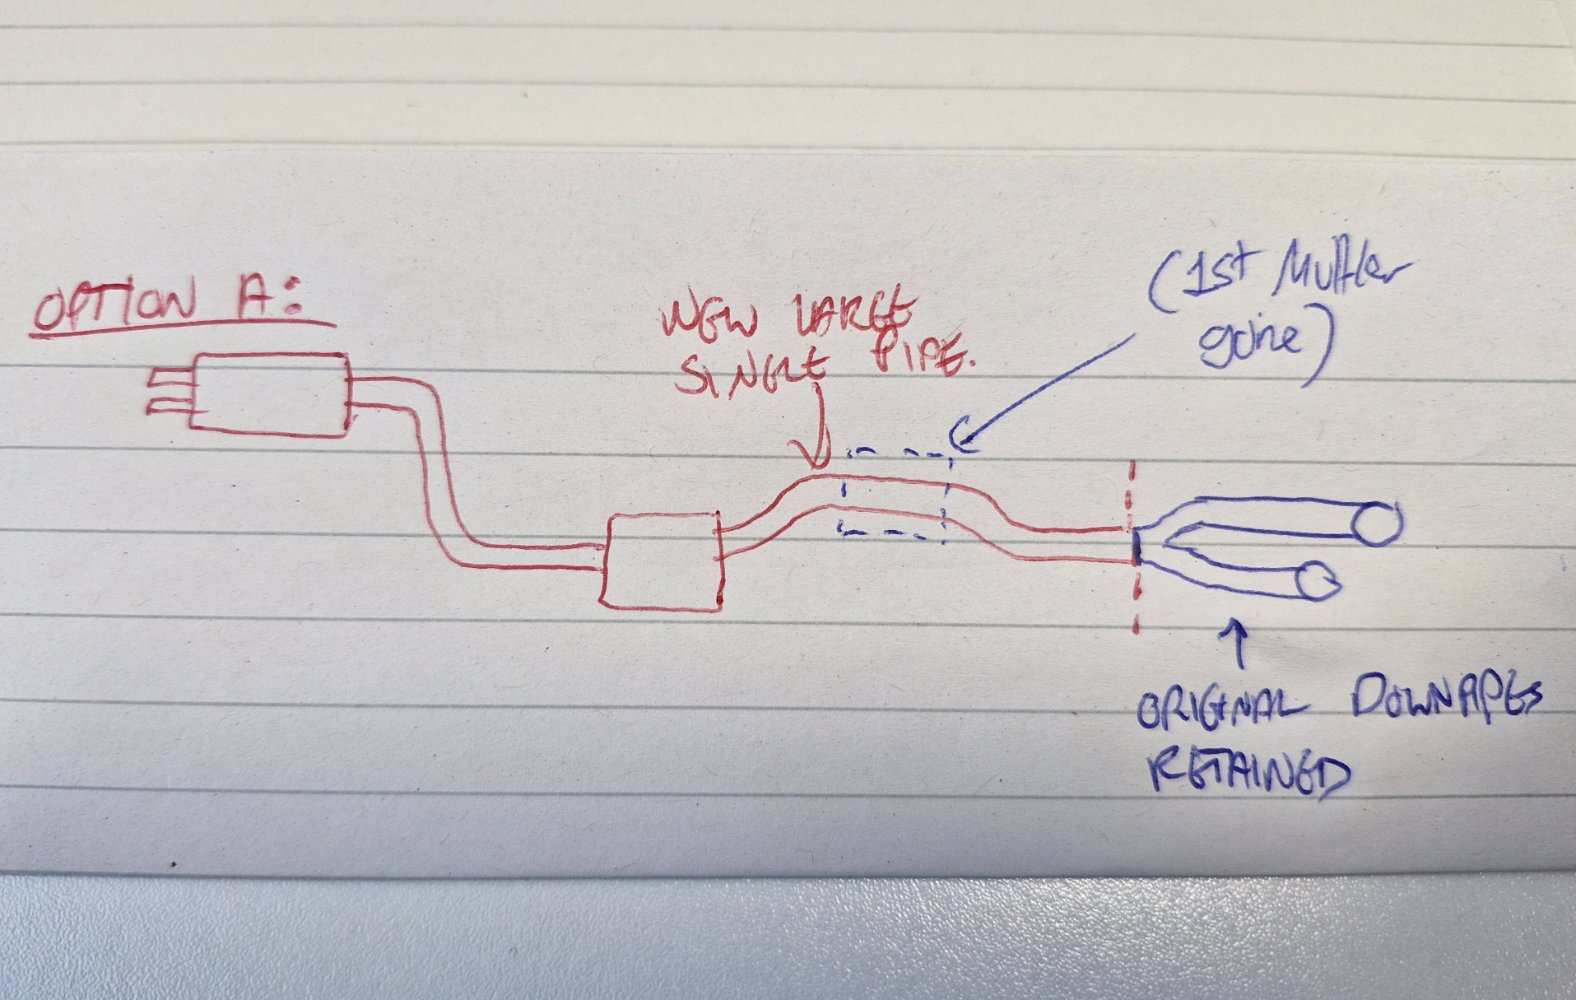 OPTION A:
NEW LARGE
SINGLE PIPE.
(1st Muffler
gone)
ORIGINAL DOWNPIPES
RETAINED